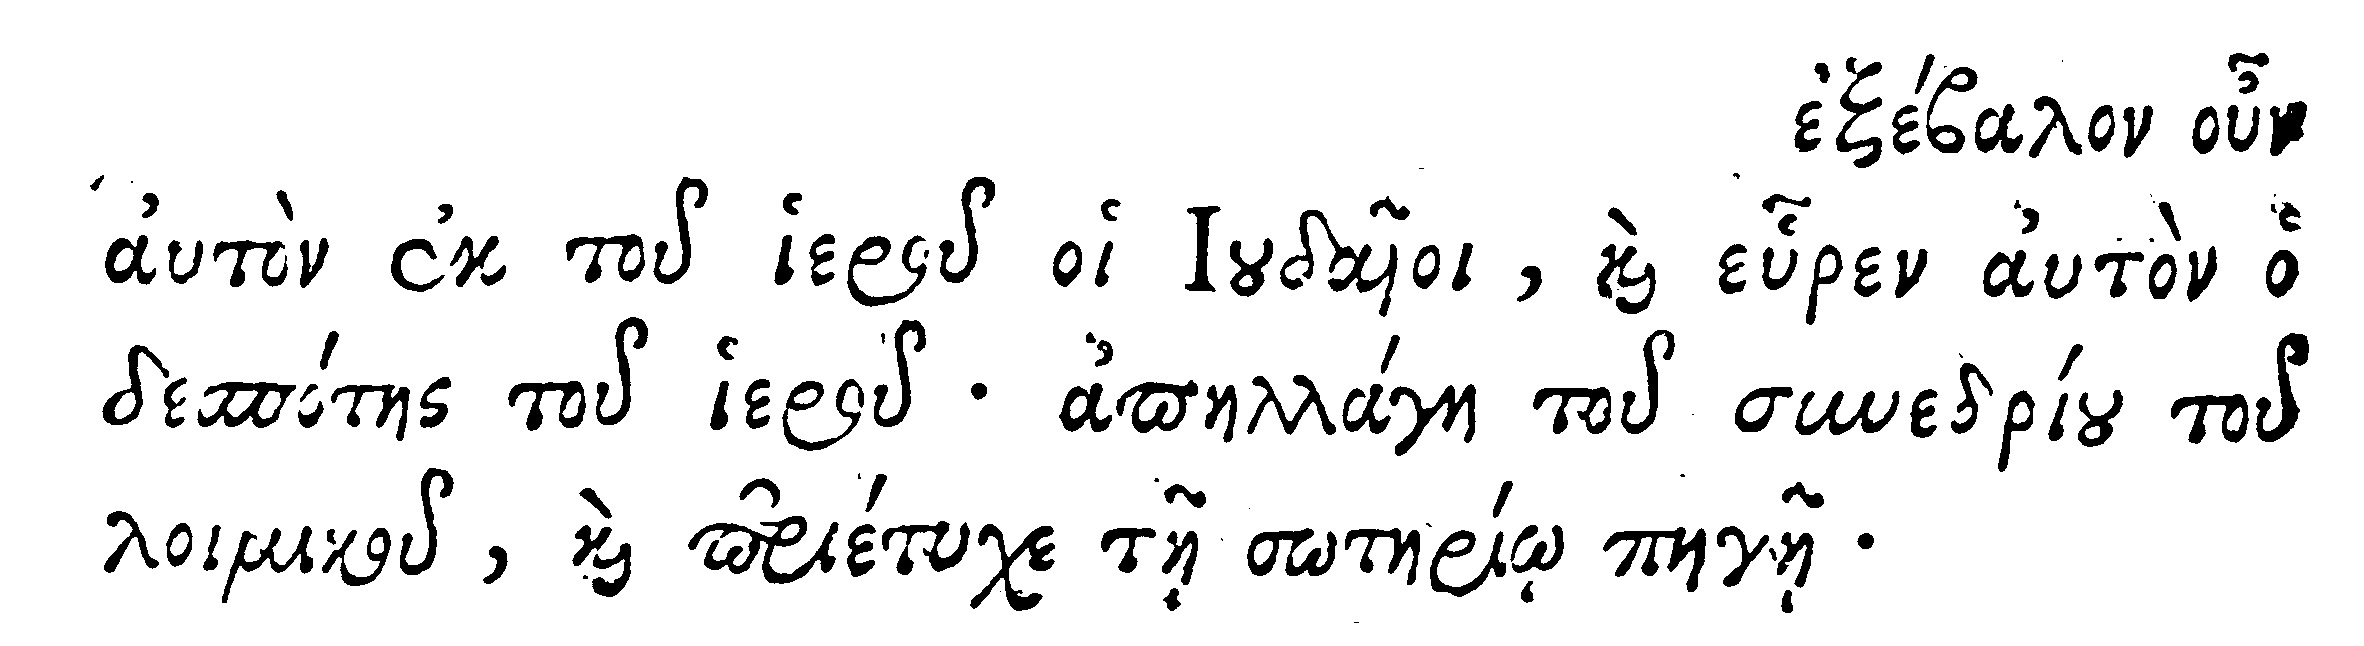 ἐξέβαλον οὖν
ἀυτὸν ἐκ τοῦ ἱεροῦ οἱ Ιουδαῖοι, καὶ εὗρεν ἀυτὸν ὁ
δεσπότης τοῦ ἱεροῦ· ἀπηλλάγη τοῦ συνεδρίου τοῦ
λοιμικοῦ, καὶ περιέτυχε τῇ σωτηρίῳ πηγῇ.